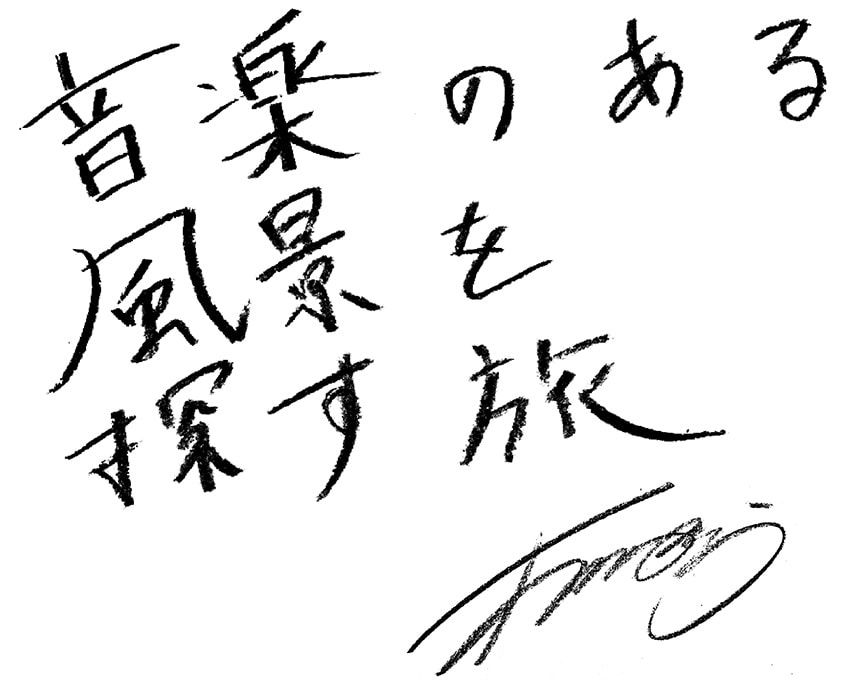 音楽のある
風景を
探す旅